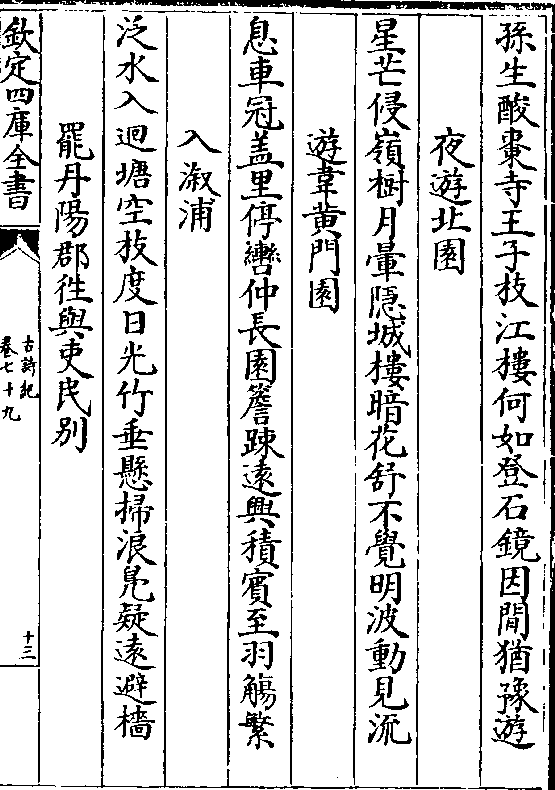 孫生酸棗寺王子枝江樓何如登石鏡因閒猶豫遊
夜遊北園
星芒侵嶺樹月暈隠城樓暗花舒不覺明波動見流
遊韋黄門園
息車冠盖里停轡仲長園簷踈遠興積賔至羽觴繁
入溆浦
泛水入迴塘空枝度日光竹垂懸掃浪鳬疑遠避檣
罷丹陽郡徃與吏民別
欽定四庫全書
古詩紀
卷七十九
十三